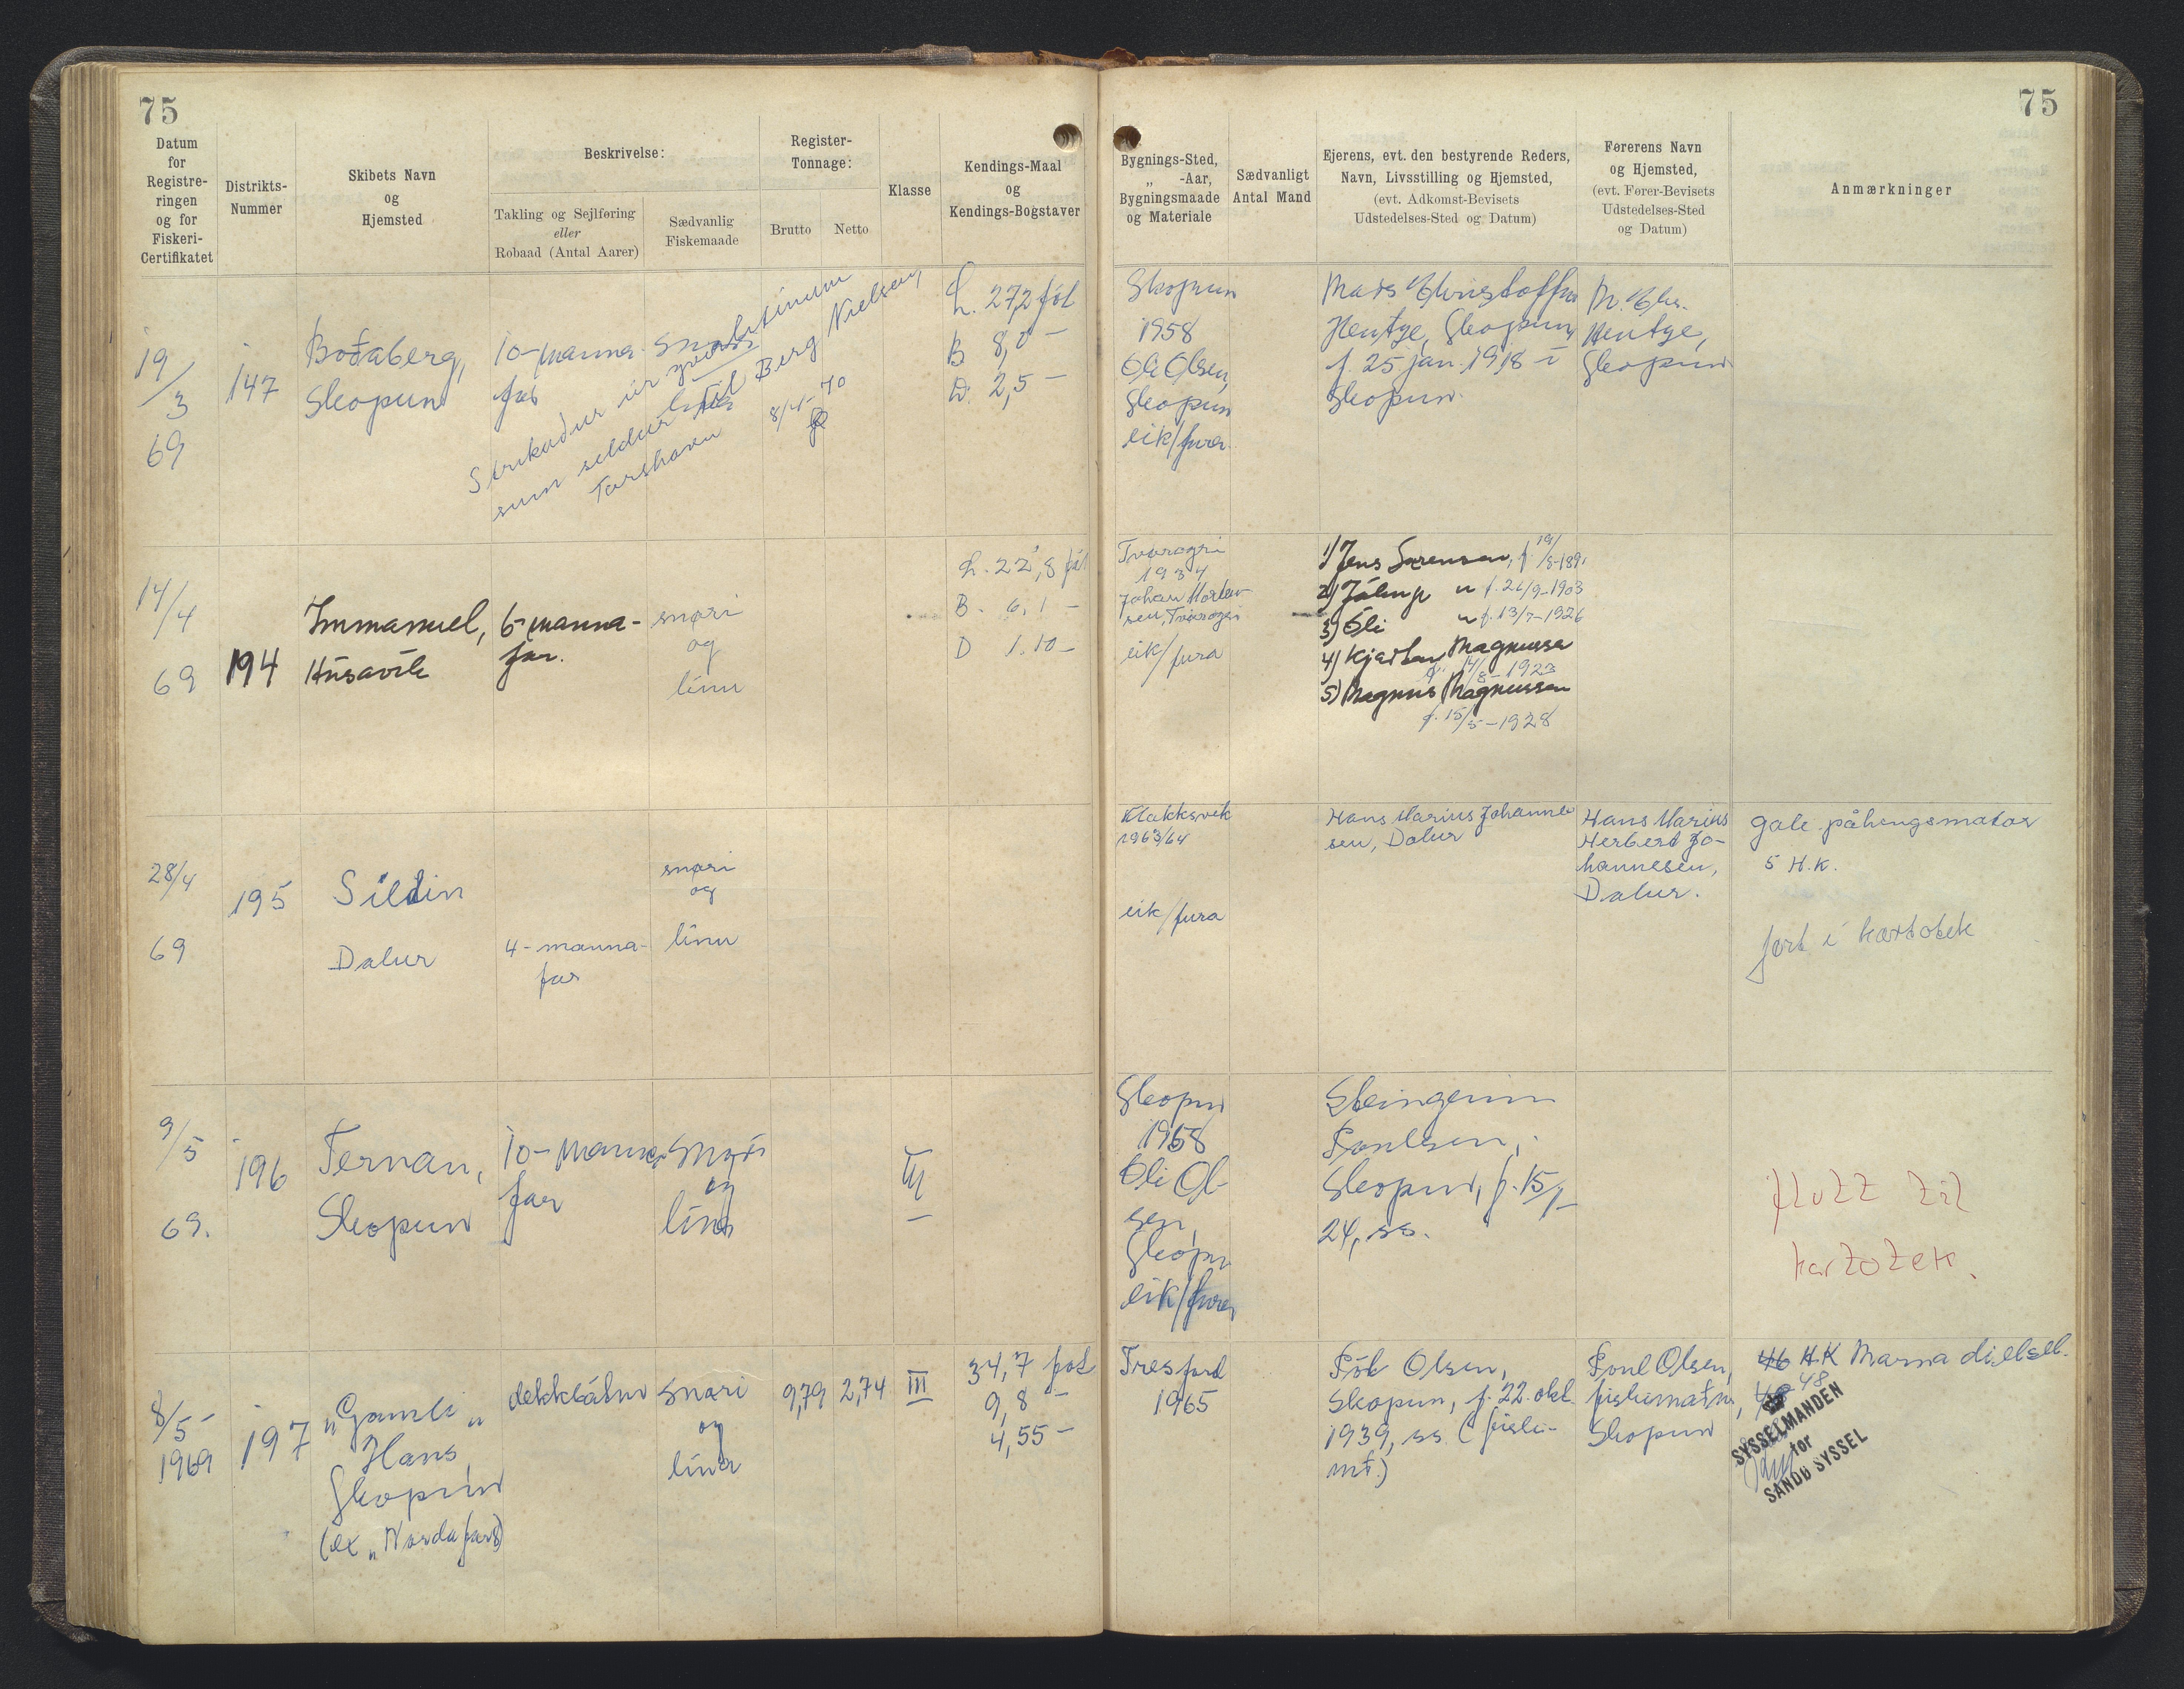 75
75
Datum
for
Registre-
ringen
og for
Fiskeri-
Certifikatet
Distrikts-
Nummer
Skibets Navn
og
Hjemsted
Beskrivelse:
Takling og Sejlføring
eller
Robaad (Antal Aarer)
Sædvanlig
Fiskemaade
Register-
Tonnage:
Brutto
Netto
Klasse
Kendings-Maal
og
Kendings-Bogstaver
Bygnings-Sted,
„ -Aar,
Bygningsmaade
og Materiale
Sædvanligt
Antal Mand
Ejerens, evt. den bestyrende Reders,
Navn, Livsstilling og Hjemsted,
(evt. Adkomst-Bevisets
Udstedelses-Sted og Datum)
Førerens Navn
og Hjemsted,
(evt. Fører-Bevisets
Udstedelses-Sted
og Datum)
Anmærkninger
19/3
69
147
Boðaberg,
Skopun
10-manna-
far
Strikaður úr
sum seldur til Berg Nielsen,
Tórshavn 8/4-70
L. 27,2 fót
B 8,0 -
D. 2,5 -
Skopun
1958
Óli Olsen,
Skopun
eik/fura
Mads Christoffur
Hentze, Skopun,
f. 25 jan. 1918 í
Skopun.
M. Chr.
Hentze,
Skopun
14/4
69
194
Immanuel,
Húsavík
6-manna-
far.
snøri
og
línu
L. 22,8 fót
B. 6,1 -
D 1.10 -
Tvøroyri
1934
Johan Morten-
sen, Tvøroyri
eik/fura
1) Jens Sørensen, f. 19/
2) Jálup " f. 26/9-1903
3) Óli " f. 13/7-1926
4) Kjartan Magnussen
1923
5) Magnus Magnussen
f. 15/5-1928
28/4
69
195
Sildin
Dalur
4-manna-
far
snøri
og
línu
Klakksvík
1963/64
eik/fura
Hans Marius Johanne-
sen, Dalur
Hans Marius
Herbert Jo-
hannesen,
Dalur.
gale påhengsmotor
5 H.K.
ført í kartotek
9/5
69.
196
Ternan,
Skopun
10-manna-
far
snøri
og
línu
III
Skopun
1958
Óli Ol-
sen,
Skopun
eik/fura
Steingrim
Poulsen,
Skopun, f. 15/
24, ss.
flutt til
kartotek.
8/5-
1969
197
"Gamli
Hans"
Skopun
(ex "Nordafari")
dekkbátur
snøri
og
línu
9,79
2,74
III
34,7 fot
9,8 -
4,55 -
Tresfjord
1965
Pól Olsen,
Skopun, f. 22. okt.
1939, ss (fiski-
m.)
Poul Olsen,
fiskimaður,
Skopun
46 HK Marna diesel.
48
SYSSELMANDEN
for
SANDØ SYSSEL